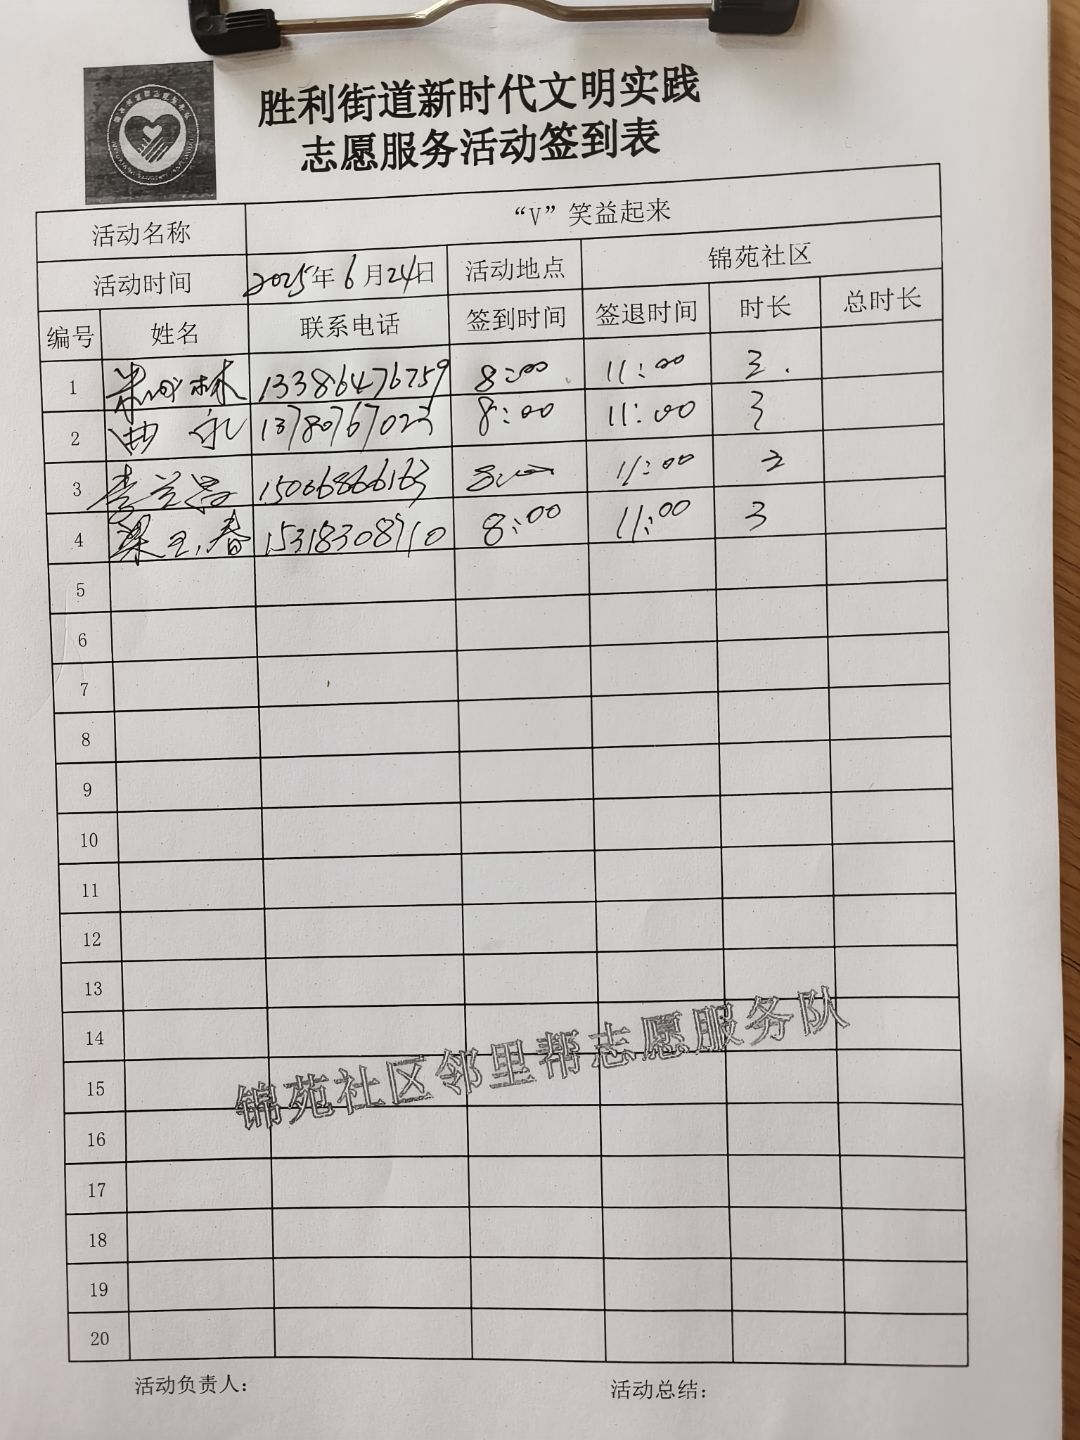 胜利街道新时代文明实践
志愿服务活动签到表
活动名称 “V”笑益起来
活动时间 2025年6月24日 活动地点 锦苑社区
编号 姓名 联系电话 签到时间 签退时间 时长 总时长
1 林 13386476759 8:00 11:00 3.
2 永 13780767023 8:00 11:00 3
3 李兰 15066866163 8:00 11:00 3
4 梁玉春 15318308910 8:00 11:00 3
5
6
7
8
9
10
11
12
13
14
15
16
17
18
19
20
锦苑社区邻里帮志愿服务队
活动负责人: 活动总结: